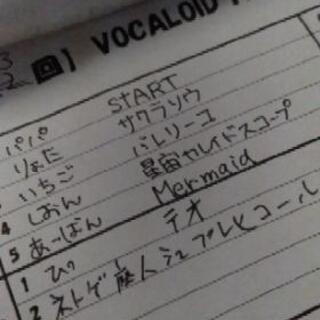 回】 VOCALOID
START
パパ サクラソウ
りょた バレリーコ
いちご 星宙カレイドスコープ
4 しおん Mermaid
5 あーぱん
1 ひっ テオ
2 ネトゲ廃人シュプレヒコール